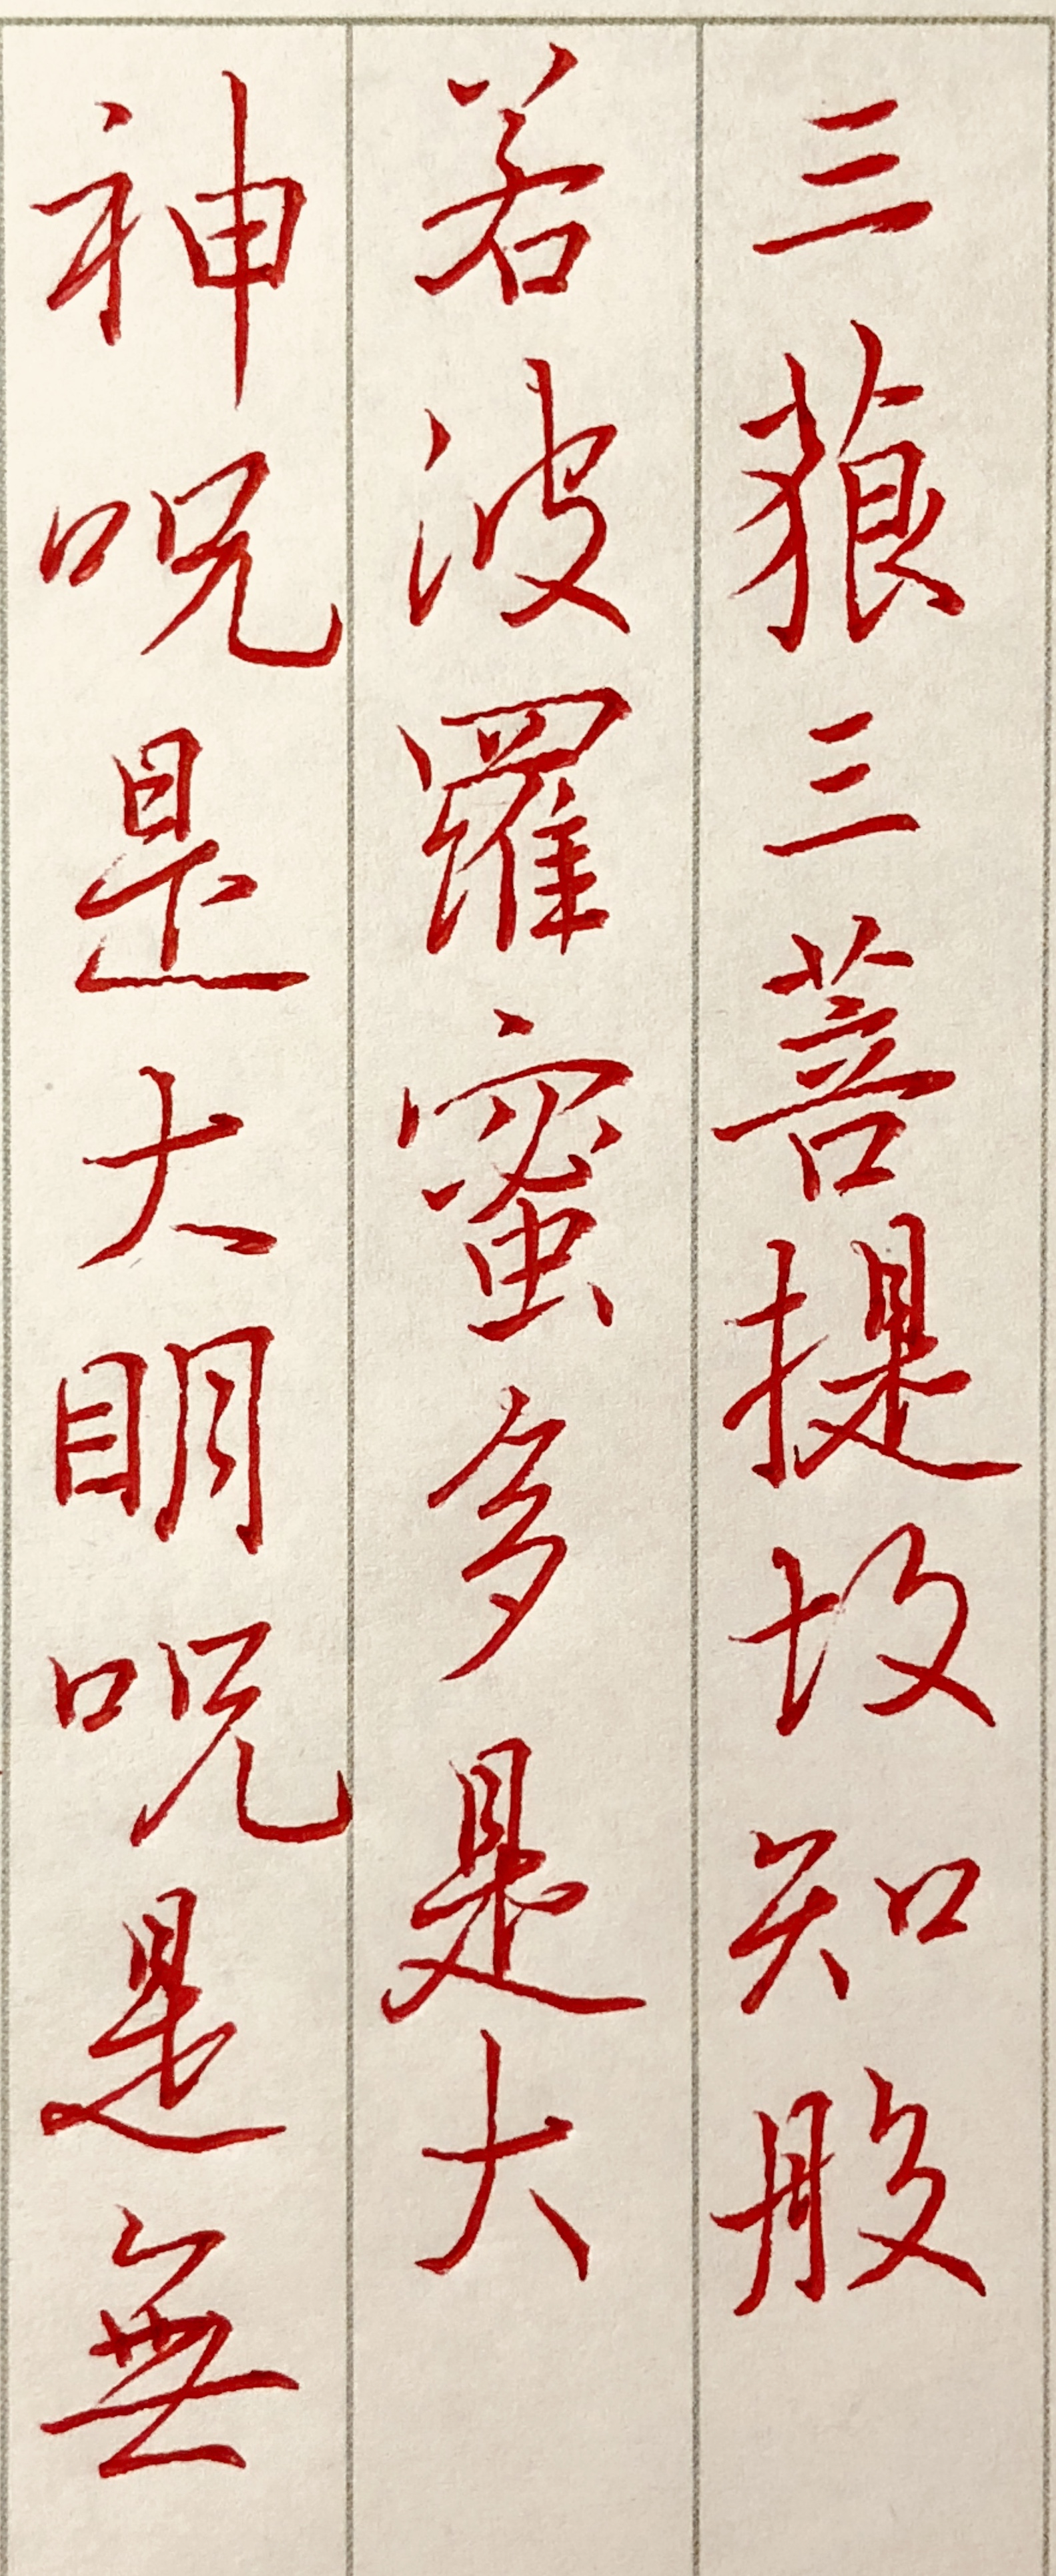 三藐三菩提故知般
若波羅蜜多是大
神呪是大明呪是無